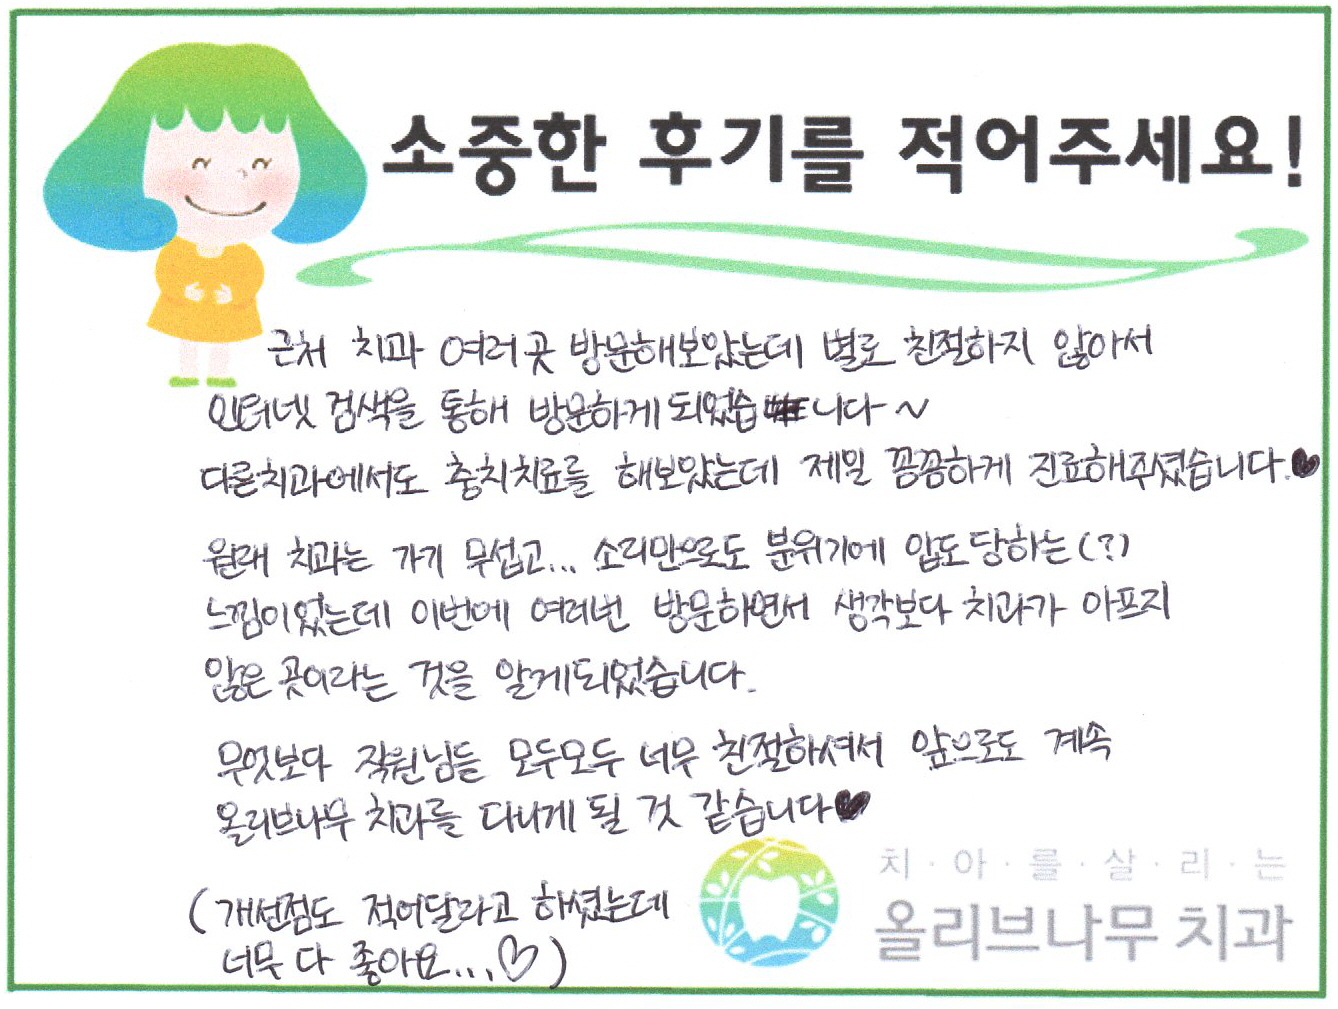 소중한 후기를 적어주세요!
근처 치과 여러곳 방문해보았는데 별로 친절하지 않아서
인터넷 검색을 통해 방문하게 되었습니다~
다른치과에서도 충치치료를 해보았는데 제일 꼼꼼하게 진료해주셨습니다.♥
원래 치과는 가기 무섭고... 소리만으로도 분위기에 압도당하는(?)
느낌이었는데 이번에 여러번 방문하면서 생각보다 치과가 아프지
않은 곳이라는 것을 알게되었습니다.
무엇보다 직원님들 모두모두 너무 친절하셔서 앞으로도 계속
올리브나무 치과를 다니게 될 것 같습니다♥
(개선점도 적어달라고 하셨는데
너무 다 좋아요...♡)
치·아·를·살·리·는
올리브나무 치과